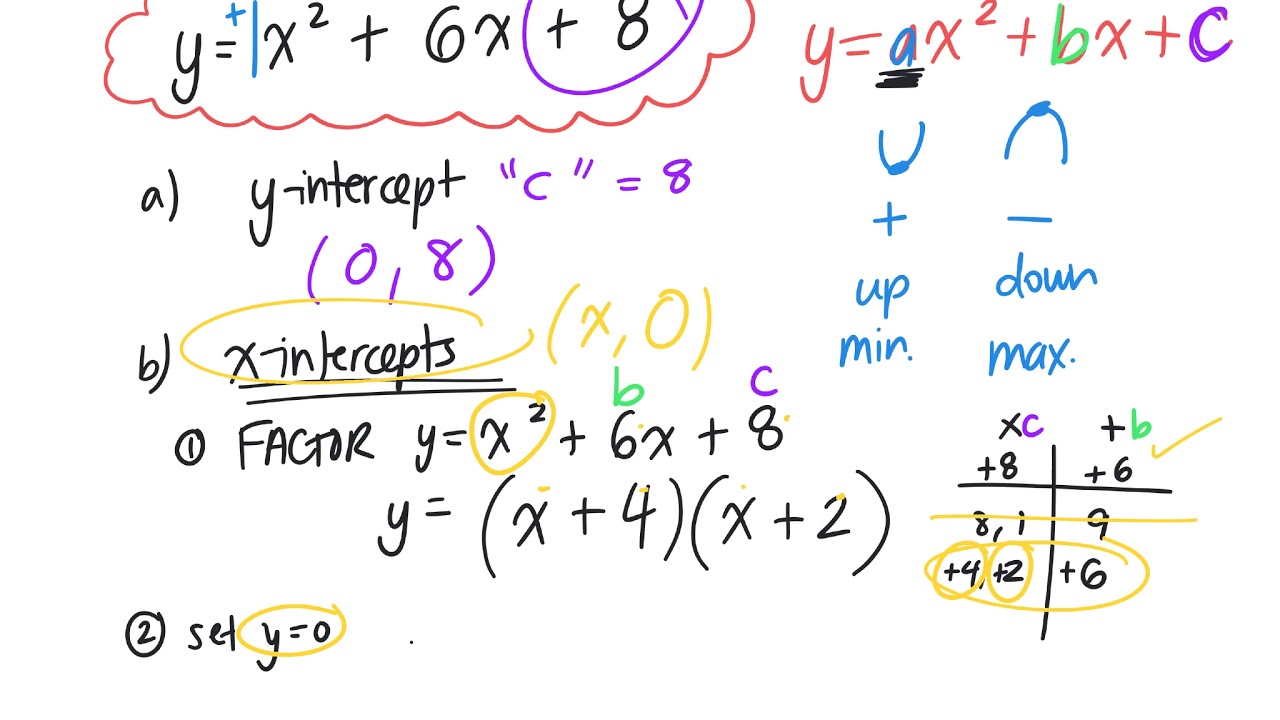 y = +1x² + 6x + 8
y = ax² + bx + c
a) y-intercept "c" = 8
(0, 8)
+ −
up down
min. max.
b) x-intercepts (x, 0)
b c
① FACTOR y = x² + 6x + 8
y = (x + 4)(x + 2)
xc +b
+8 +6
8, 1 9
+4, +2 +6
② set y=0